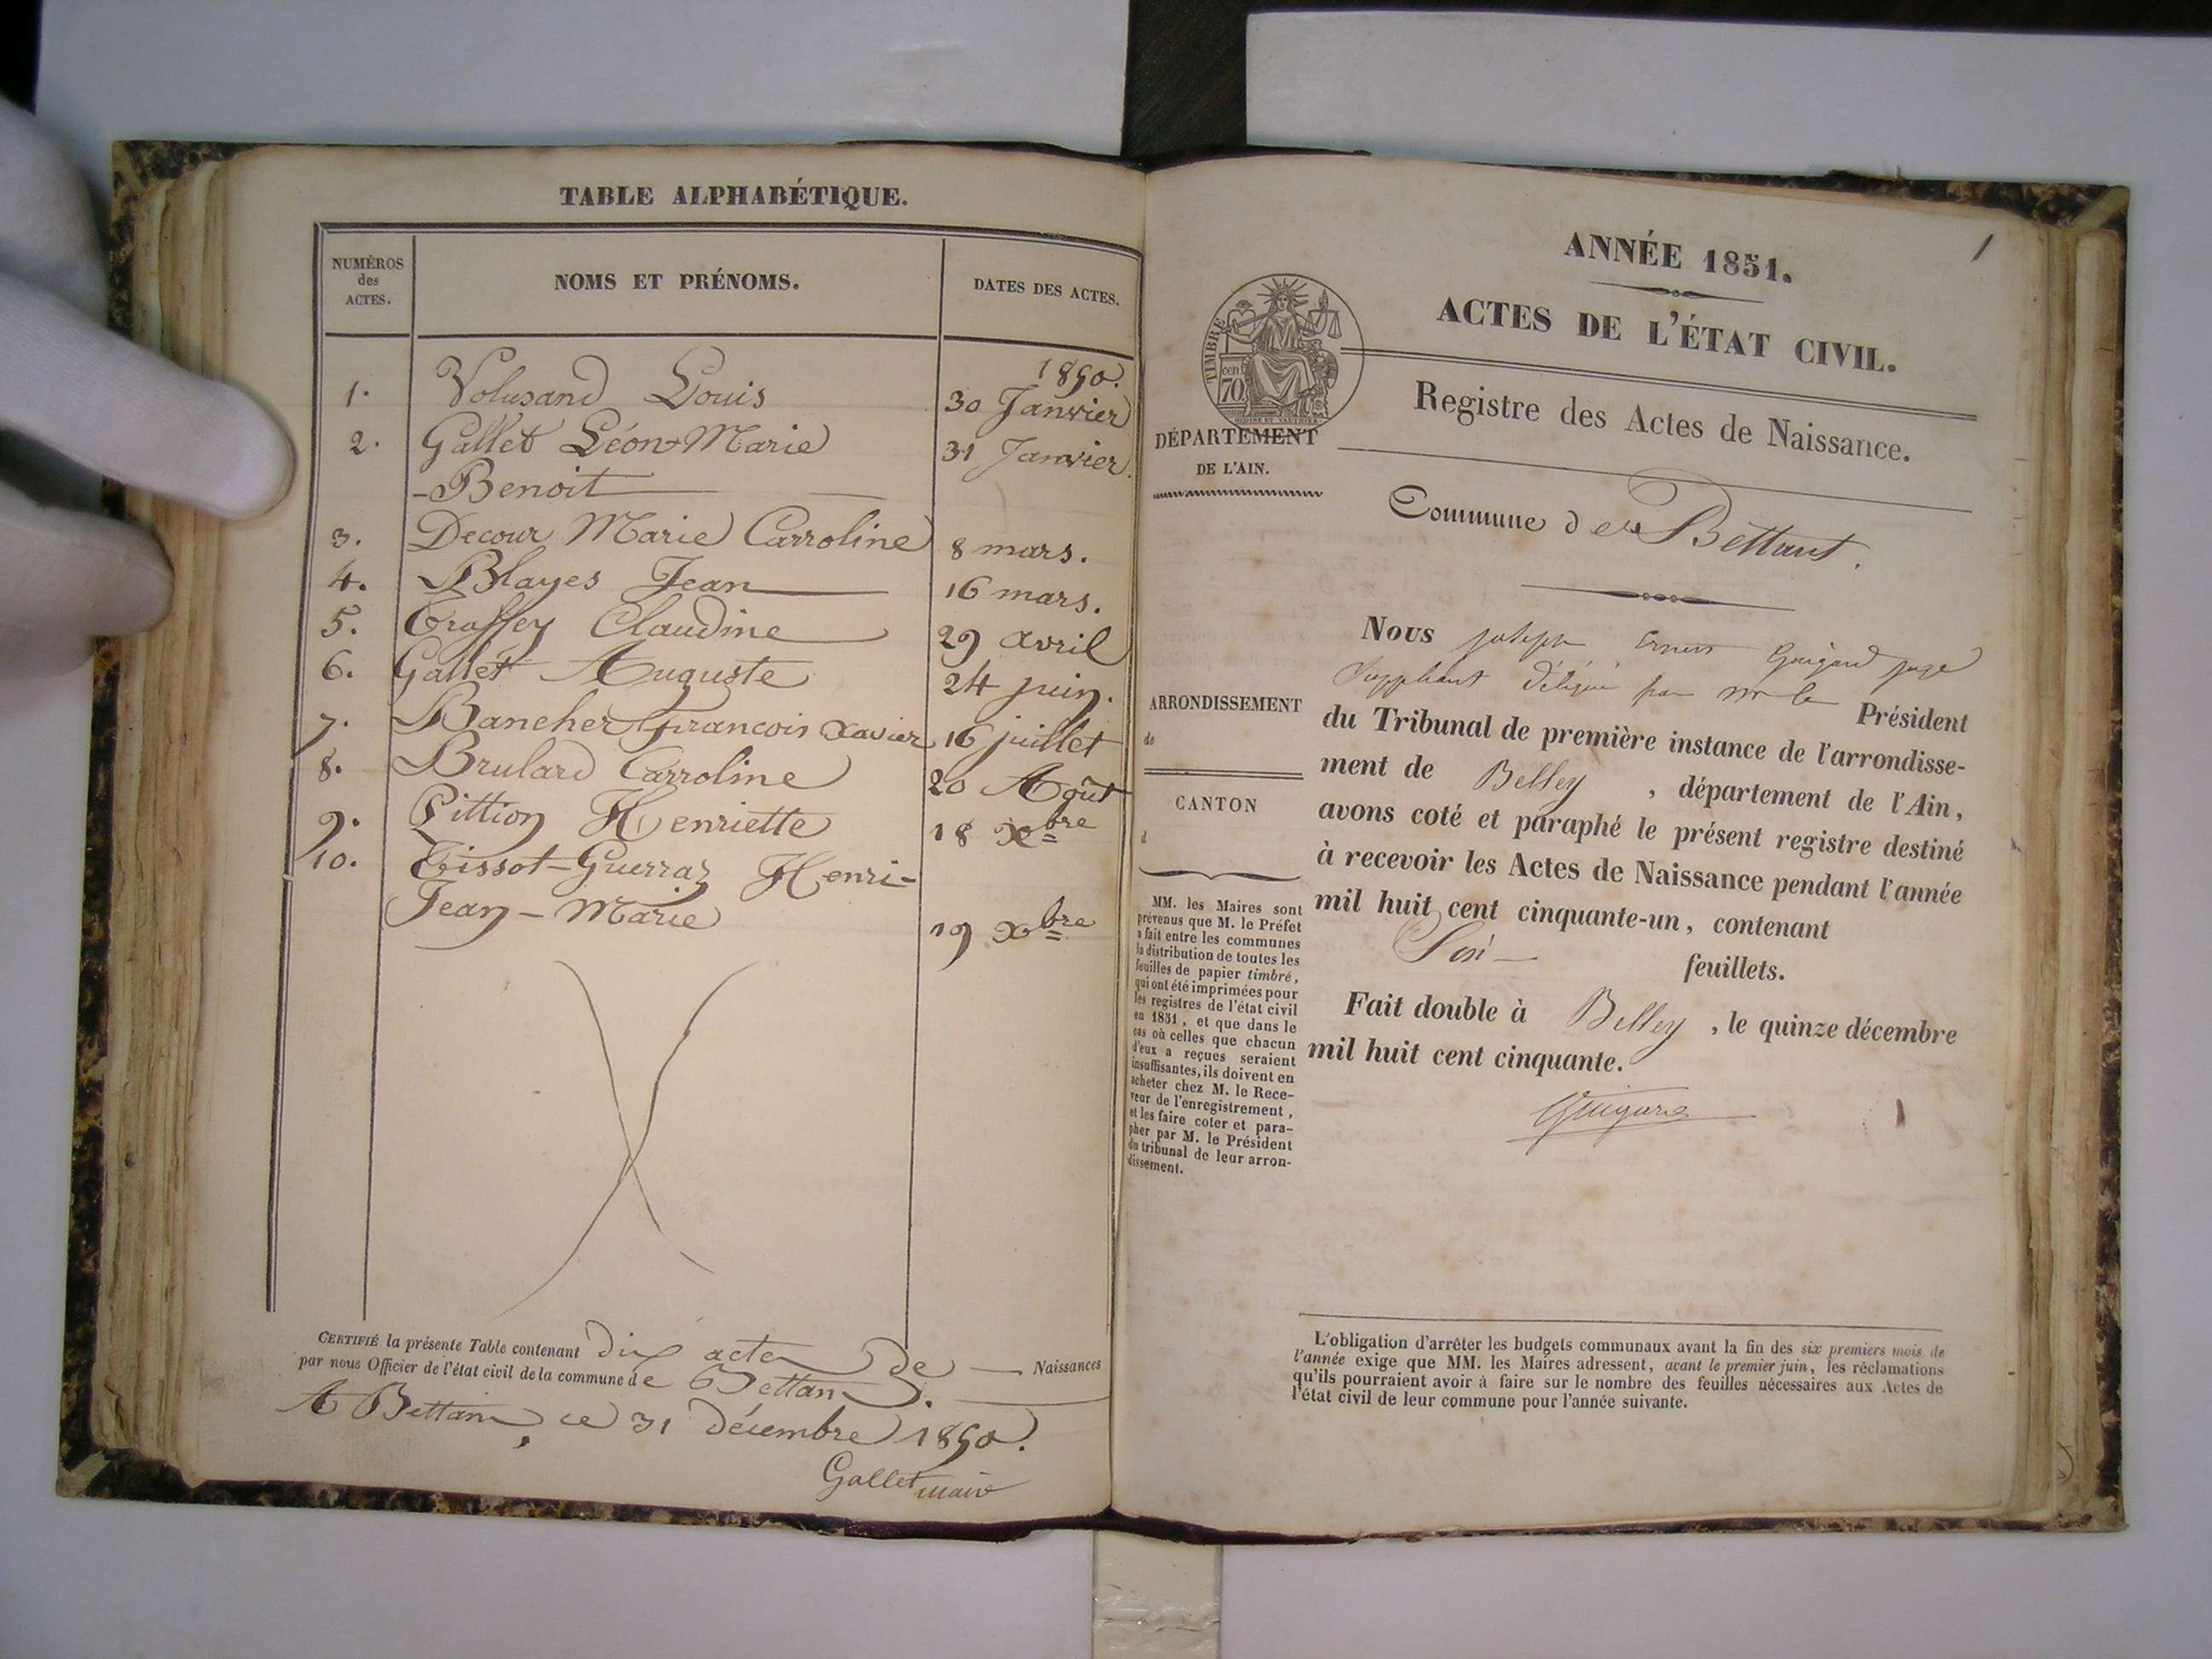 TABLE ALPHABÉTIQUE.
NUMÉROS
des
ACTES.
NOMS ET PRÉNOMS.
DATES DES ACTES.
1850.
1. Volusand Louis 30 Janvier
2. Gallet Léon-Marie 31 Janvier.
-Benoit
3. Decour Marie Carroline 8 mars.
4. Blayes Jean 16 mars.
5. Truffey Claudine 29 avril
6. Gallet Auguste 24 juin.
7. Bancher François Xavier 16 juillet
8. Brulard Carroline 20 Août
9. Pittion Henriette 18 Xbre
10. Tissot-Guerraz Henri-
Jean-Marie 19 Xbre
CERTIFIÉ la présente Table contenant dix actes de Naissances
par nous Officier de l'état civil de la commune de Bettans.
A Bettans, ce 31 décembre 1850.
Gallet maire
1
ANNÉE 1851.
ACTES DE L'ÉTAT CIVIL.
TIMBRE
70
cen.
Registre des Actes de Naissance.
DÉPARTEMENT
DE L'AIN.
Commune de Bettant.
Nous joseph Guigard juge
Suppléant délégué par mr le Président
ARRONDISSEMENT
de
du Tribunal de première instance de l'arrondisse-
ment de Belley, département de l'Ain,
CANTON
d
avons coté et paraphé le présent registre destiné
à recevoir les Actes de Naissance pendant l'année
mil huit cent cinquante-un, contenant
Six feuillets.
Fait double à Belley, le quinze décembre
mil huit cent cinquante.
Guigard
MM. les Maires sont
prévenus que M. le Préfet
a fait entre les communes
la distribution de toutes les
feuilles de papier timbré,
qui ont été imprimées pour
les registres de l'état civil
en 1851, et que dans le
cas où celles que chacun
d'eux a reçues seraient
insuffisantes, ils doivent en
acheter chez M. le Rece-
veur de l'enregistrement,
et les faire coter et para-
pher par M. le Président
du tribunal de leur arron-
dissement.
L'obligation d'arrêter les budgets communaux avant la fin des six premiers mois de
l'année exige que MM. les Maires adressent, avant le premier juin, les réclamations
qu'ils pourraient avoir à faire sur le nombre des feuilles nécessaires aux Actes de
l'état civil de leur commune pour l'année suivante.